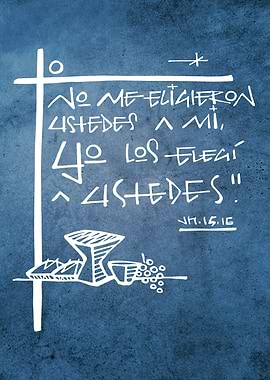 No ME ELIGIERON
USTEDES A MÍ,
YO LOS ELEGÍ
A USTEDES".
JN.15.16